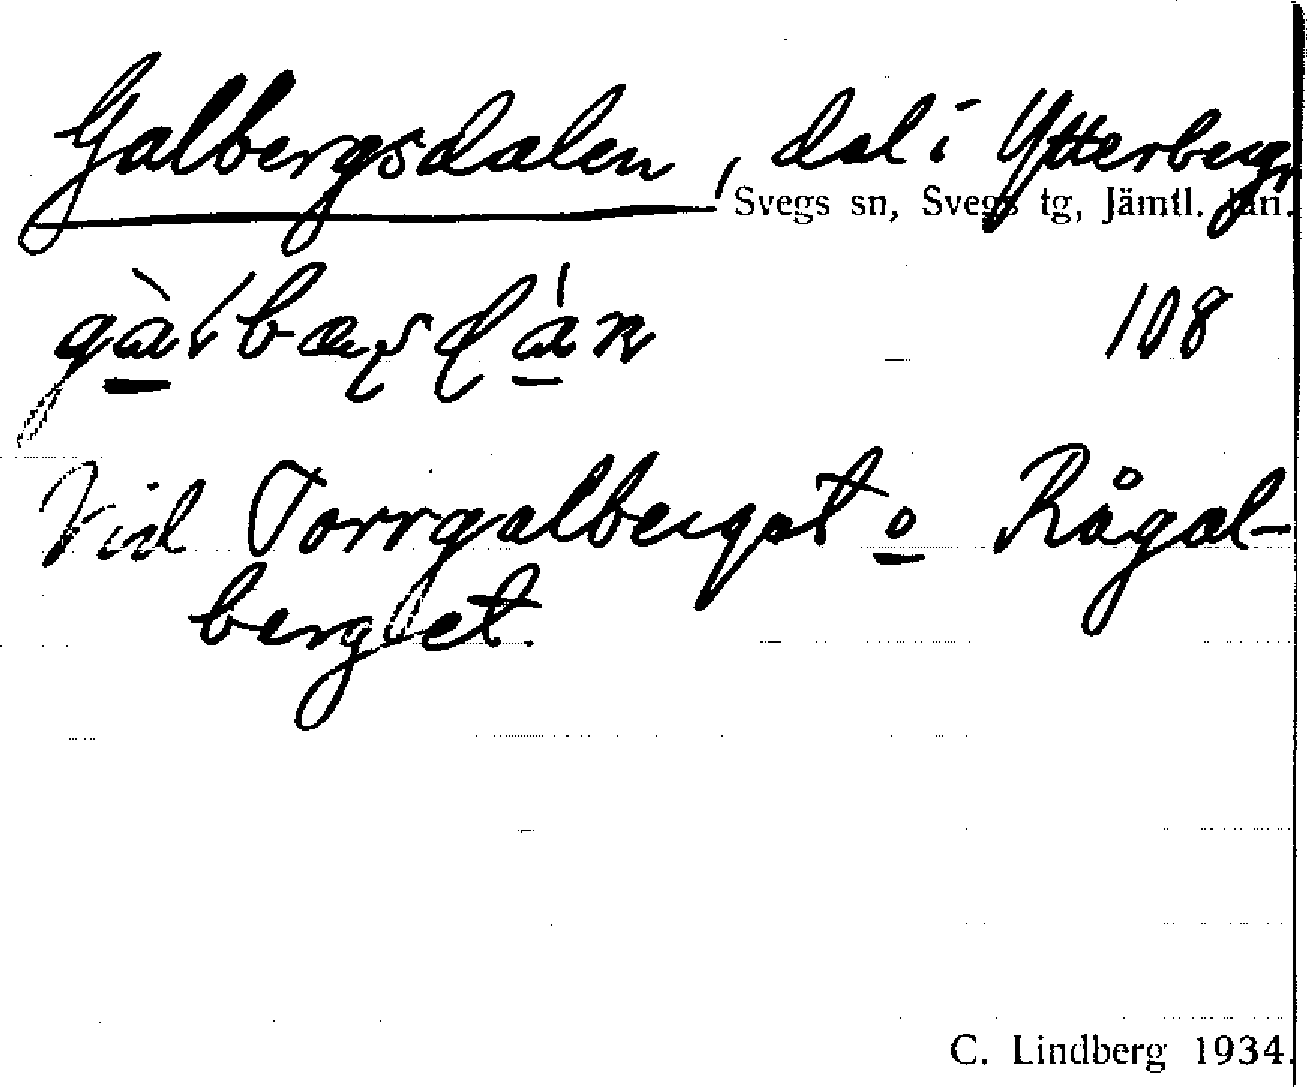 Galbergsdalen, dal i Ytterberg,
Svegs sn, Svegs tg, Jämtl. län.
108
Vid Torrgalberget o Rågal-
berget.
C. Lindberg 1934.